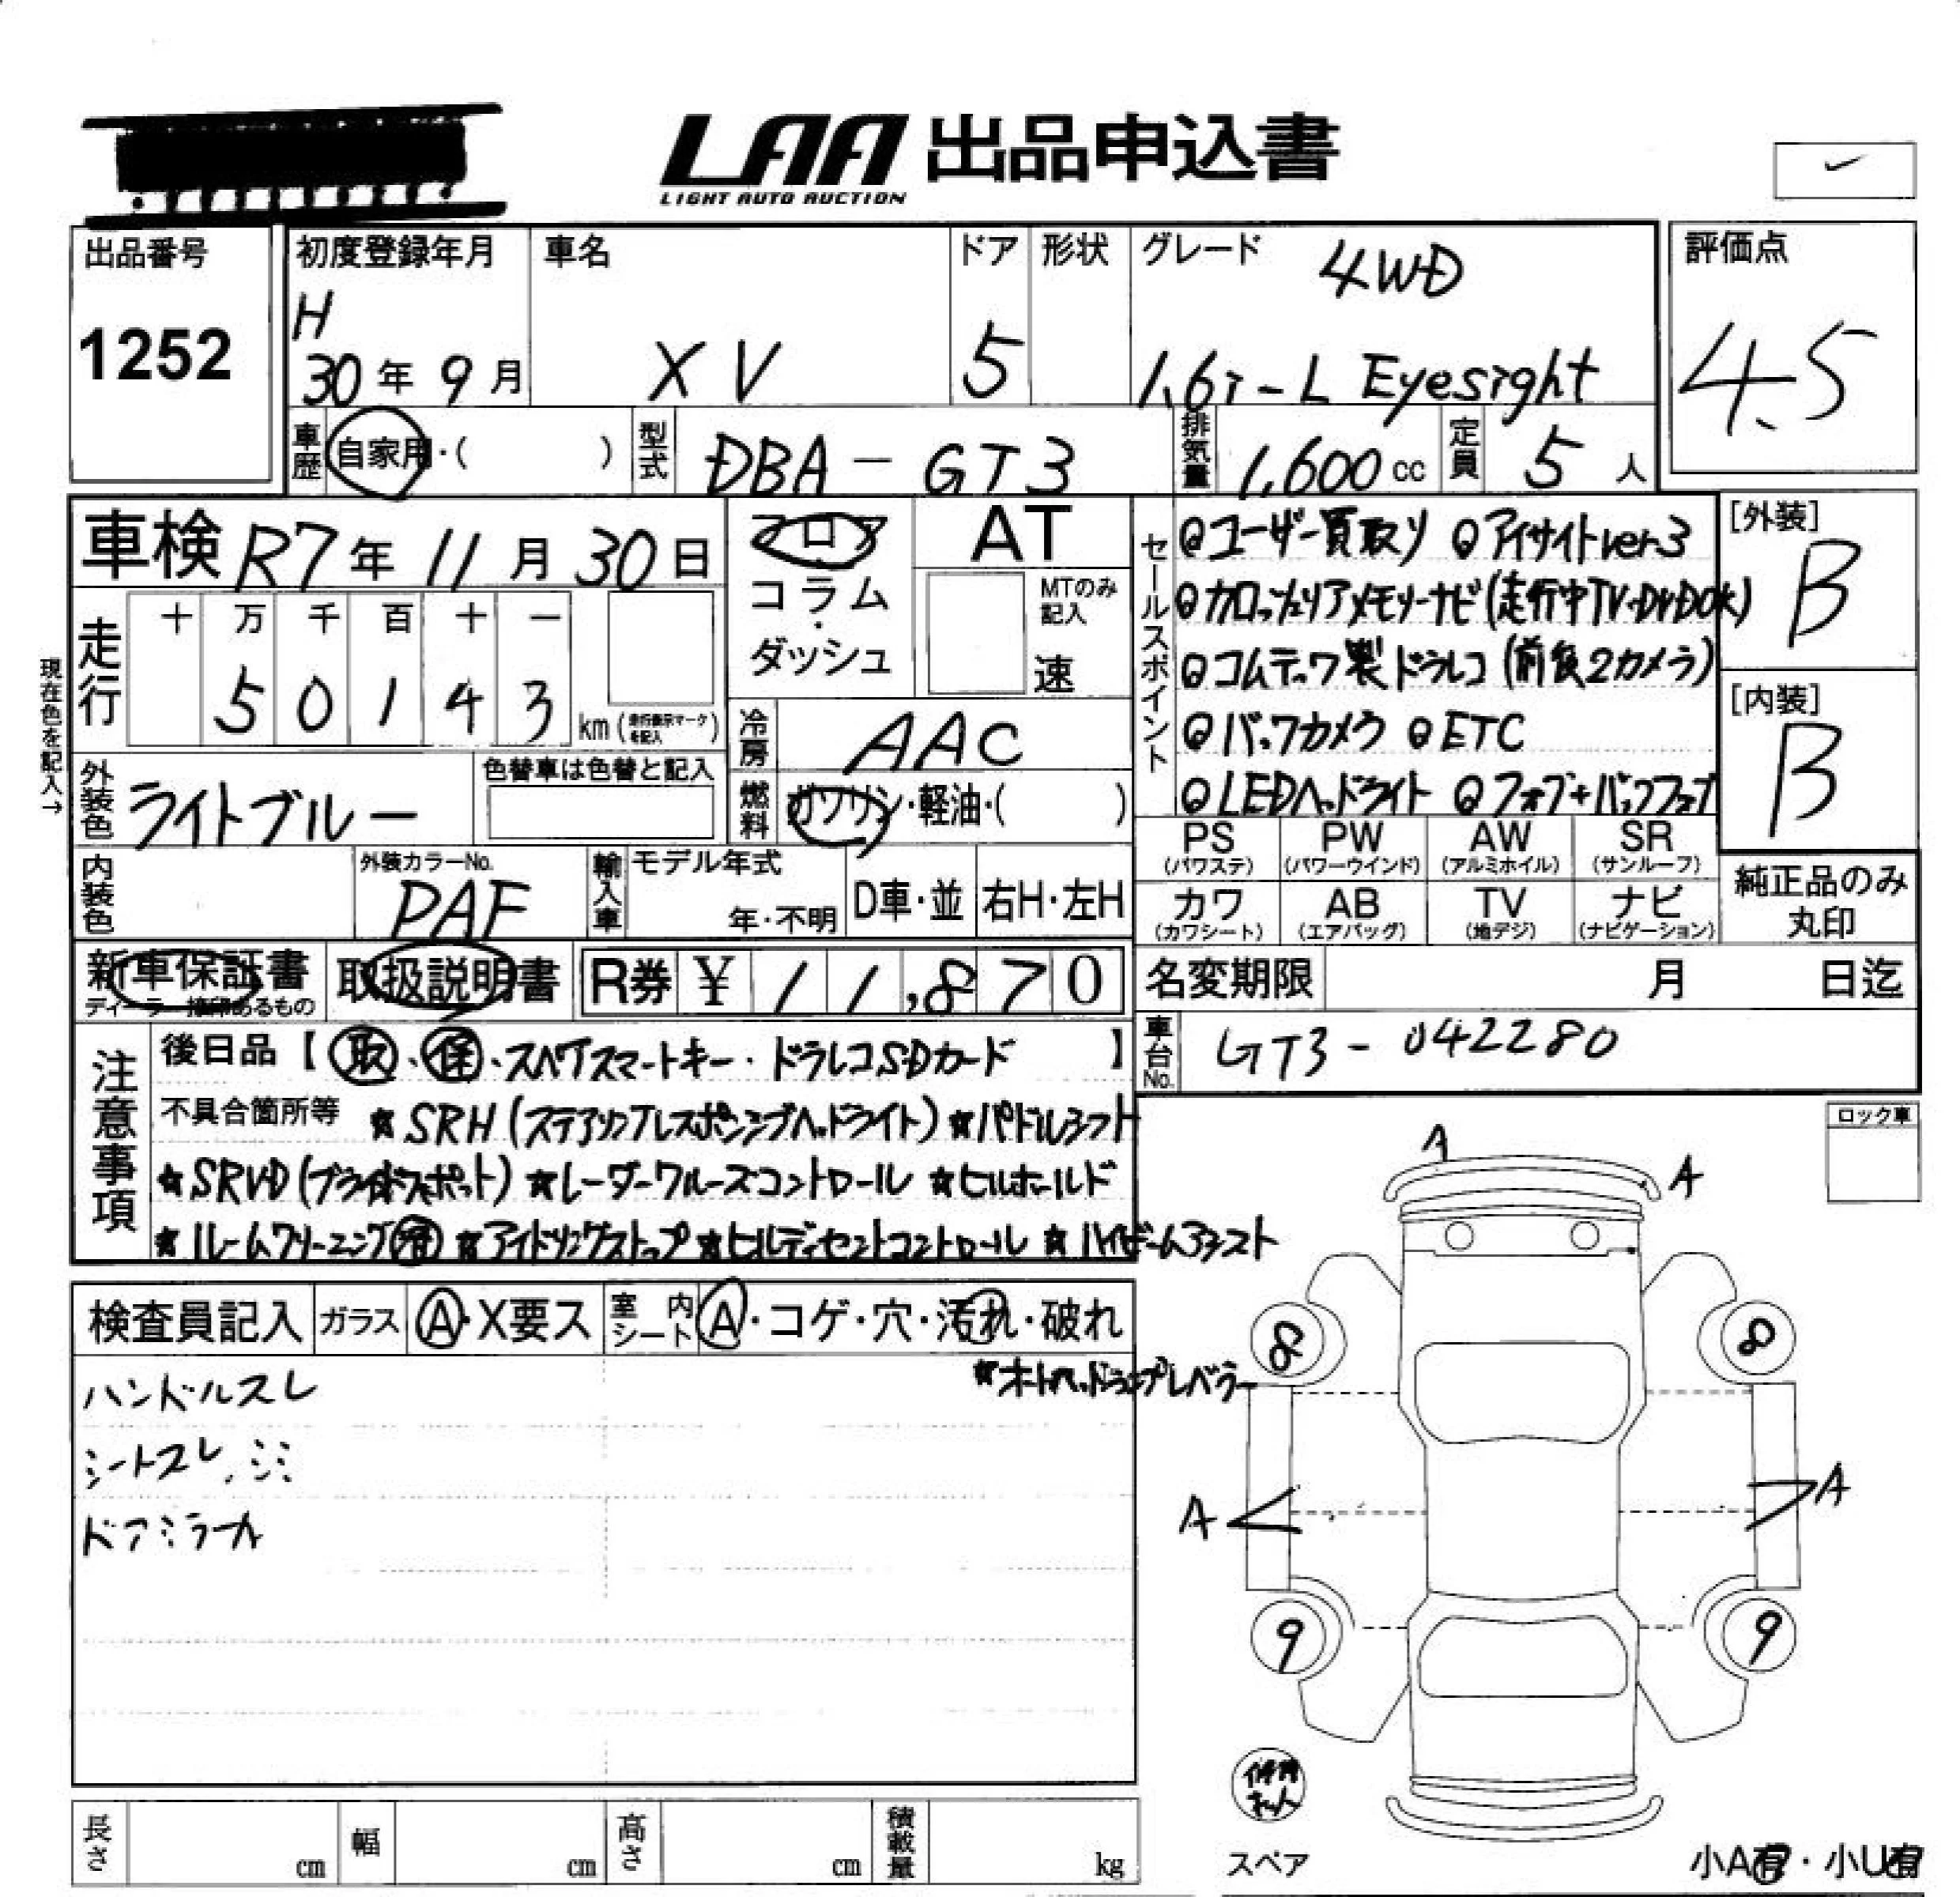 LAA 出品申込書
LIGHT AUTO AUCTION
出品番号 1252
初度登録年月 H 30年 9月
車名 XV
ドア 5
形状
グレード 4WD
1.6i-L Eyesight
評価点 4.5
車歴 自家用・( )
型式 DBA-GT3
排気量 1,600 cc
定員 5 人
車検 R7年 11月 30日
フロア
コラム・
ダッシュ
AT
MTのみ記入
速
走行 十 万 千 百 十 一
5 0 1 4 3 km (走行表示マークを記入)
現在色を記入→
冷房 AAC
外装色 ライトブルー
色替車は色替と記入
燃料 ガソリン・軽油・( )
内装色
外装カラーNo. PAF
輸入車 モデル年式
年・不明 D車・並 右H・左H
セールスポイント
◎ユーザー買取り ◎アイサイトver3
◎カロッツェリアメモリーナビ(走行中TV・DVDOK)
◎コムテック製ドラレコ(前後2カメラ)
◎バックカメラ ◎ETC
◎LEDヘッドライト ◎フォグ+バックフォグ
[外装] B
[内装] B
PS (パワステ) PW (パワーウインド) AW (アルミホイル) SR (サンルーフ)
カワ (カワシート) AB (エアバッグ) TV (地デジ) ナビ (ナビゲーション)
純正品のみ
丸印
新車保証書 取扱説明書 R券 ¥11,870
ディーラー捺印あるもの
名変期限 月 日迄
車台No. GT3-042280
注意事項
後日品【 取、保、スペアスマートキー・ドラレコSDカード 】
不具合箇所等 ☆SRH(ステアリングレスポンシブヘッドライト) ☆パドルシフト
☆SRVD(ブラインドスポット) ☆レーダークルーズコントロール ☆ヒルホールド
☆ルームクリーニング済 ☆アイドリングストップ ☆ヒルディセントコントロール ☆ハイビームアシスト
ロック車
検査員記入 ガラス A・X要ス 室内シート A・コゲ・穴・汚れ・破れ
☆オートヘッドランプレベラー
ハンドルスレ
シートスレ、シミ
ドアミラーA
A
A
8 8
A A
9 9
スペア
小A有・小U有
長さ cm 幅 cm 高さ cm 積載量 kg